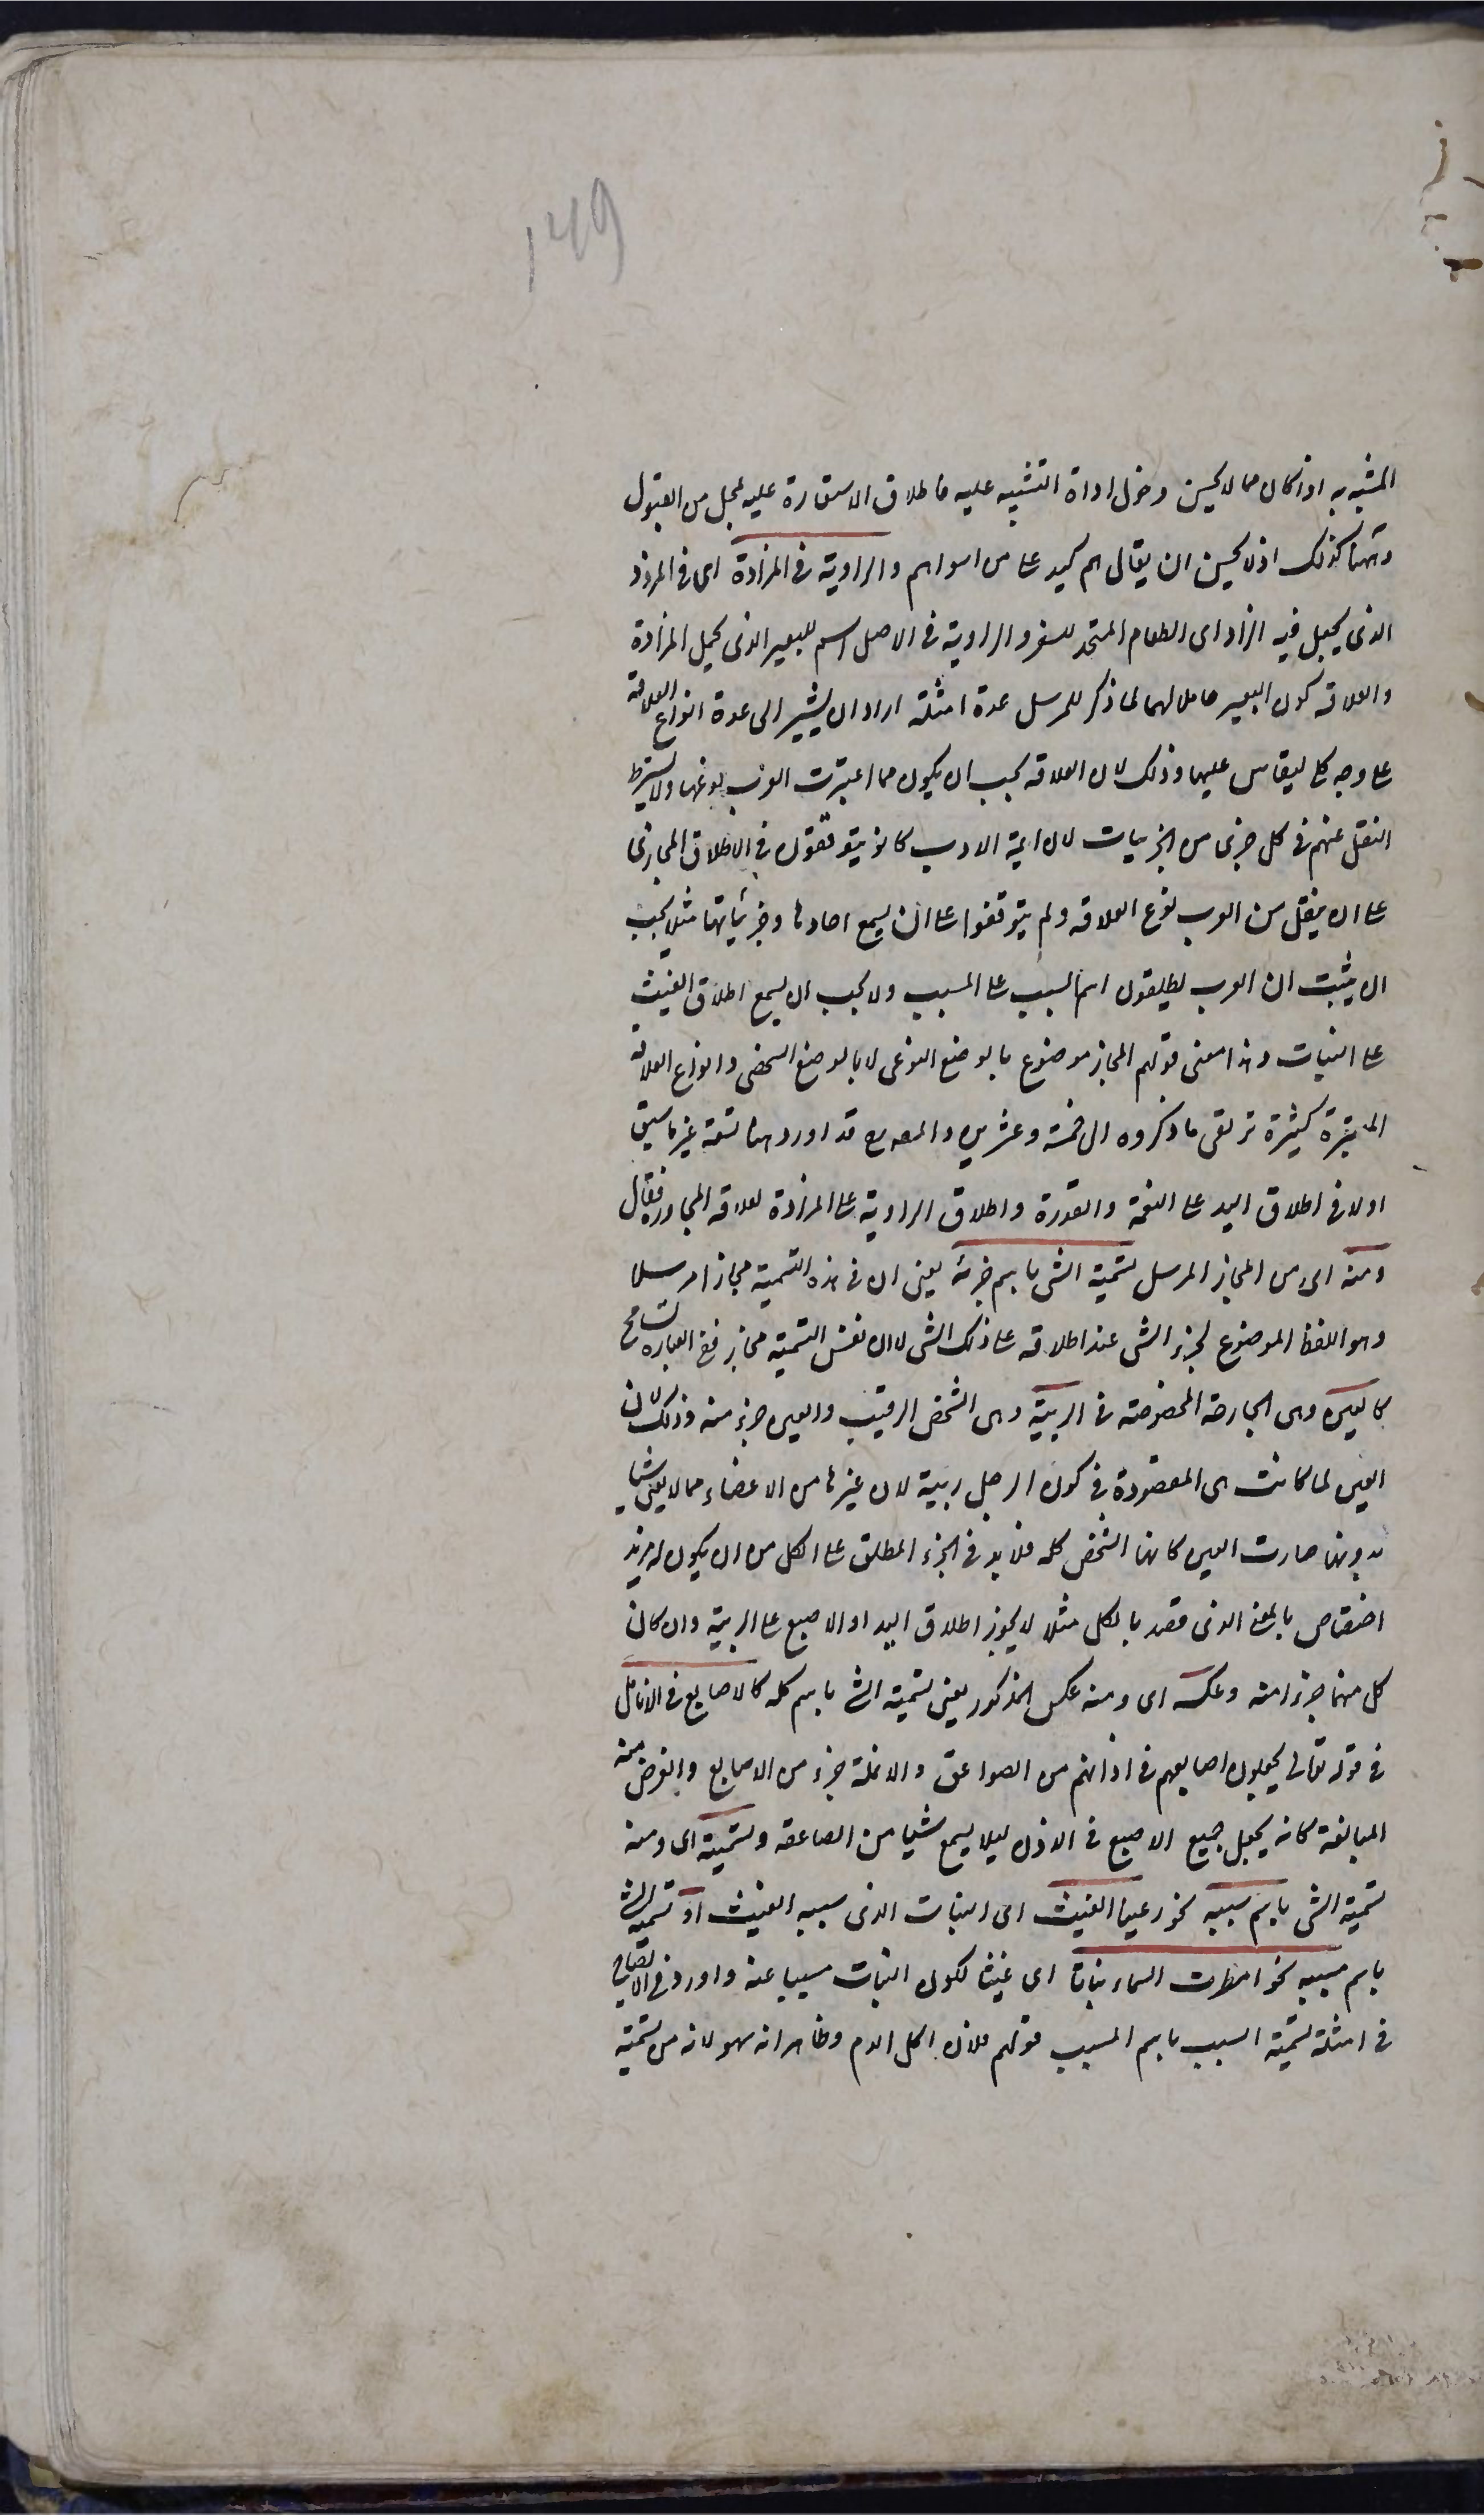 149
المشبه به اذا كان مما لا يحسن دخول اداة التشبيه عليه فاطلاق الاستعارة عليه بمحل من القبول
وههنا كذلك اذ لا يحسن ان يقال هم كيد على من سواهم والراوية في المزادة اى في المزود
الذى يجعل فيه الزاد اى الطعام المتخذ للسفر والراوية في الاصل اسم للبعير الذى يحمل المزادة
والعلاقة كون البعير حاملا لهما لما ذكر للمرسل عدة امثلة اراد ان يشير الى عدة انواع العلاقة
على وجه كلى ليقاس عليها وذلك لان العلاقة يجب ان يكون مما اعتبرت العرب نوعها ولا يشترط
النقل عنهم في كل جزئى من الجزييات لان ايمة الادب كانو يتوقفون في الاطلاق المجازى
على ان ينقل من العرب نوع العلاقة ولم يتوقفوا على ان يسمع احادها وجزئياتها مثلا يجب
ان يثبت ان العرب يطلقون اسم السبب على المسبب ولا يجب ان يسمع اطلاق الغيث
على النبات وهذا معنى قولهم المجاز موضوع بالوضع النوعى لا بالوضع الشخصى وانواع العلاقة
المعتبرة كثيرة ترتقى ما ذكروه الى خمسة وعشرين والمصنف قد اورد ههنا تسعة غير ما سبق
اولا في اطلاق اليد على النعمة والقدرة واطلاق الراوية على المزادة لعلاقة المجاورة فقال
ومنه اى من المجاز المرسل تسمية الشى باسم جزئه يعنى ان في هذه التسمية مجازا مرسلا
وهو اللفظ الموضوع لجزء الشى عند اطلاقه على ذلك الشى لا ان نفس التسمية مجاز ففى العبارة تسامح
كالعين وهى الجارحة المخصوصة في الربية وهى الشخص الرقيب والعين جزء منه وذلك لان
العين لما كانت هى المقصودة في كون الرجل ربية لان غيرها من الاعضاء مما لا يغنى شيا
بدونها صارت العين كانها الشخص كله فلا بد في الجزء المطلق على الكل من ان يكون له مزيد
اختصاص بالمعنى الذى قصد بالكل مثلا لا يجوز اطلاق اليد او الاصبع على الربية وان كان
كل منهما جزءا منه وعكسه اى ومنه عكس المذكور يعنى تسمية الشى باسم كله كالاصابع في الانامل
في قوله تعالى يجعلون اصابعهم في اذانهم من الصواعق والانملة جزء من الاصابع والغرض منه
المبالغة كانه يجعل جميع الاصبع في الاذن ليلا يسمع شيا من الصاعقة وتسميته اى ومنه
تسمية الشى باسم سببه نحو رعينا الغيث اى النبات الذى سببه الغيث او تسمية الشى
باسم مسببه نحو امطرت السماء نباتا اى غيثا لكون النبات مسببا عنه واورد في الايضاح
في امثلة تسمية السبب باسم المسبب قولهم فلان اكل الدم وظاهر انه سهو لانه من تسمية